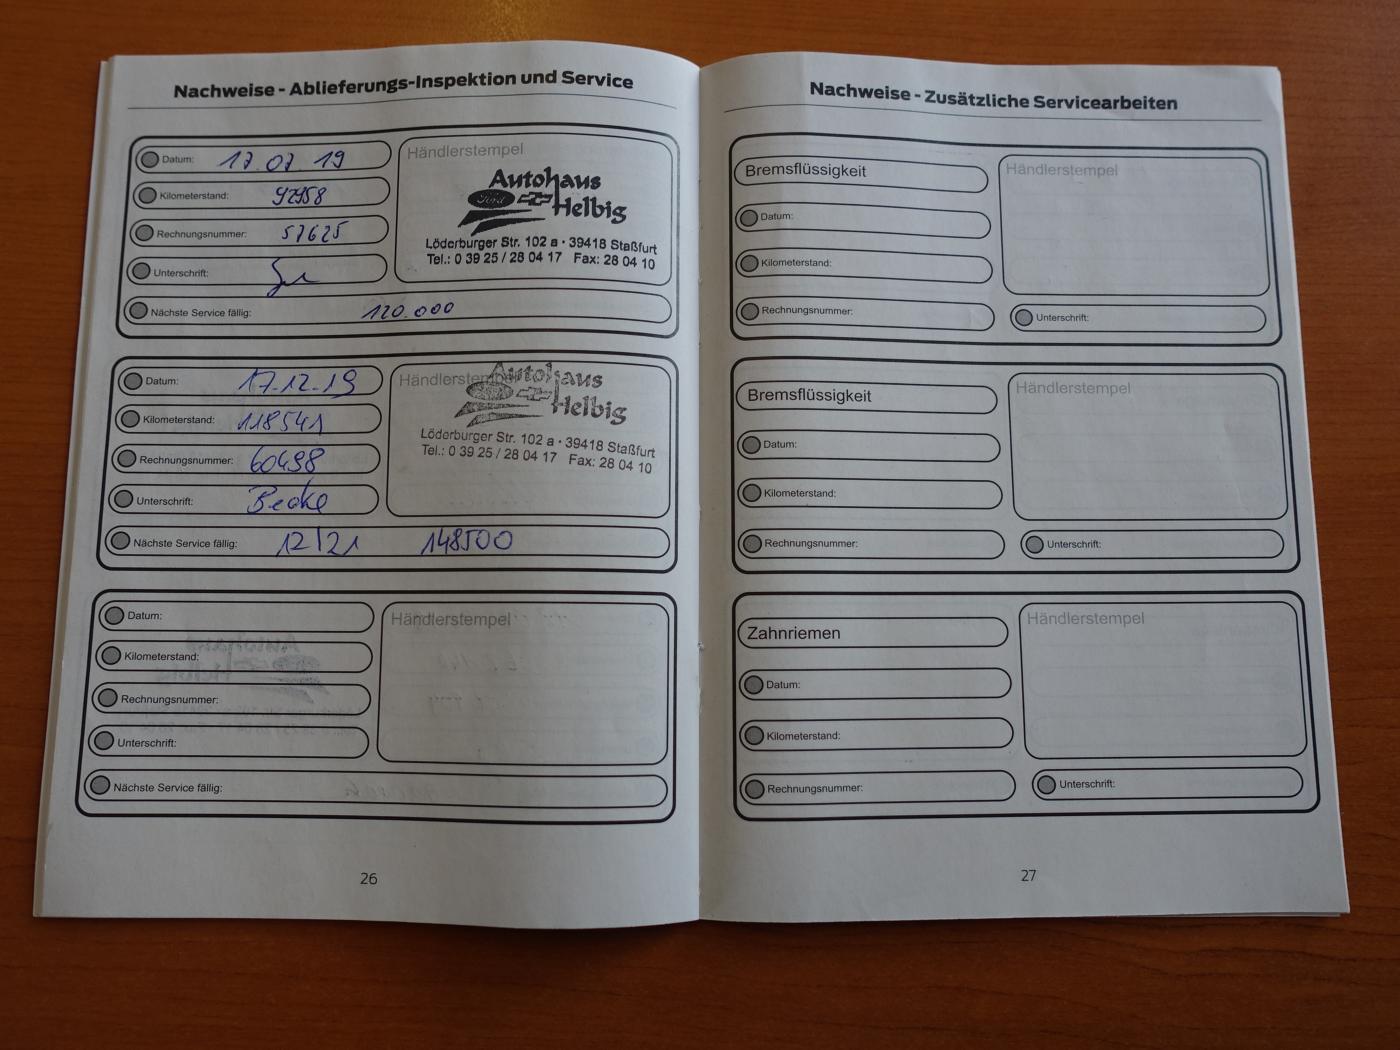 Nachweise - Ablieferungs-Inspektion und Service
Datum: 17.07.19
Kilometerstand: 92958
Rechnungsnummer: 57625
Unterschrift:
Nächste Service fällig: 120.000
Händlerstempel
Autohaus
Ford
Helbig
Löderburger Str. 102 a · 39418 Staßfurt
Tel.: 0 39 25 / 28 04 17 Fax: 28 04 10
Datum: 17.12.19
Kilometerstand: 118541
Rechnungsnummer: 60498
Unterschrift: Becke
Nächste Service fällig: 12/21 148500
Händlerstempel
Autohaus
Helbig
Löderburger Str. 102 a · 39418 Staßfurt
Tel.: 0 39 25 / 28 04 17 Fax: 28 04 10
Datum:
Kilometerstand:
Rechnungsnummer:
Unterschrift:
Nächste Service fällig:
Händlerstempel
26
Nachweise - Zusätzliche Servicearbeiten
Bremsflüssigkeit
Datum:
Kilometerstand:
Rechnungsnummer:
Händlerstempel
Unterschrift:
Bremsflüssigkeit
Datum:
Kilometerstand:
Rechnungsnummer:
Händlerstempel
Unterschrift:
Zahnriemen
Datum:
Kilometerstand:
Rechnungsnummer:
Händlerstempel
Unterschrift:
27